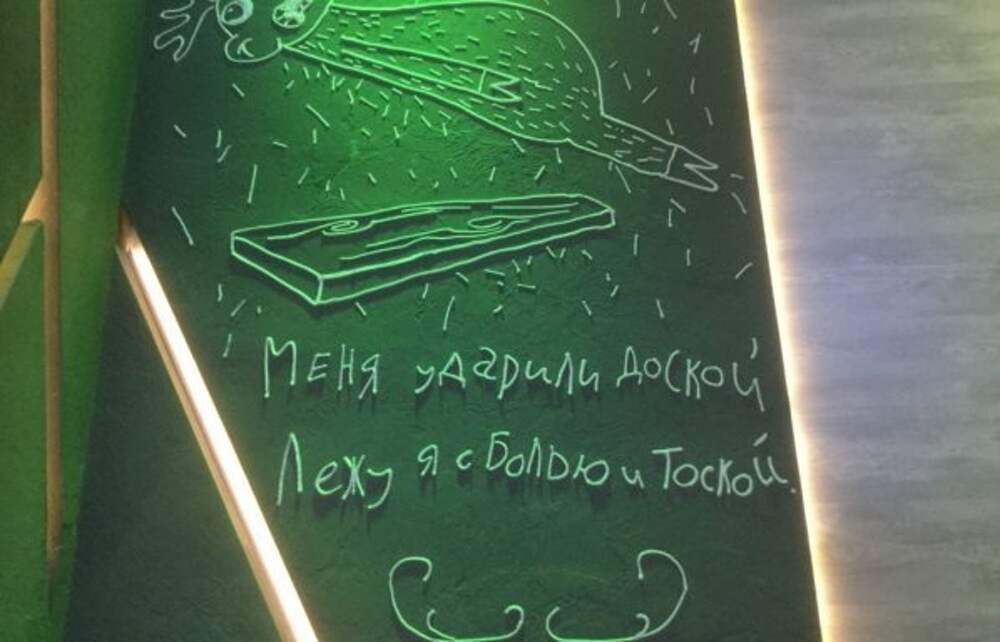 Меня ударили доской
Лежу я с болью и Тоской.